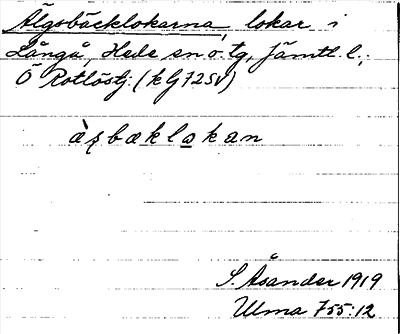 Älgsbäcklokarna, lokar i
Långå, Hede sn o. tg, Jämtl. l.;
Ö Rotlöstj. (kG 725V)
æ̀ʂbæklo̲kan
S. Åsander 1919
Ulma 755:12